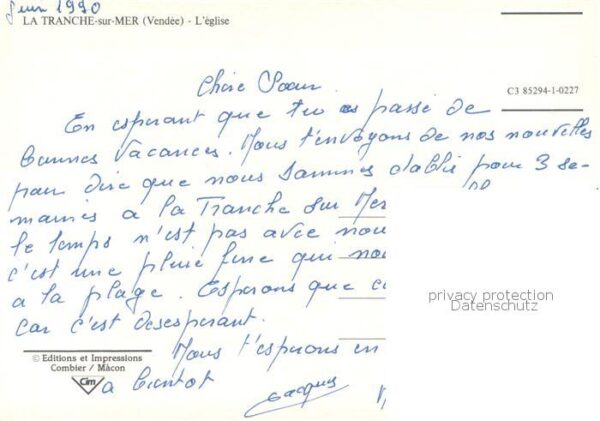 Juin 1990
LA TRANCHE-sur-MER (Vendée) - L'église
C3 85294-1-0227
Chère Soeur.
En esperant que tu as passé de
bonnes vacances. Nous t'envoyons de nos nouvelles
pour dire que nous sommes établis pour 3 se-
maines a la Tranche sur Mer
le temps n'est pas avec nou
c'est une pluie fine qui no
a la plage. Esperons que c
car c'est desesperant.
privacy protection
Datenschutz
Nous t'esperons en
a bientot
Jacques
© Editions et Impressions
Combier / Mâcon
Cim